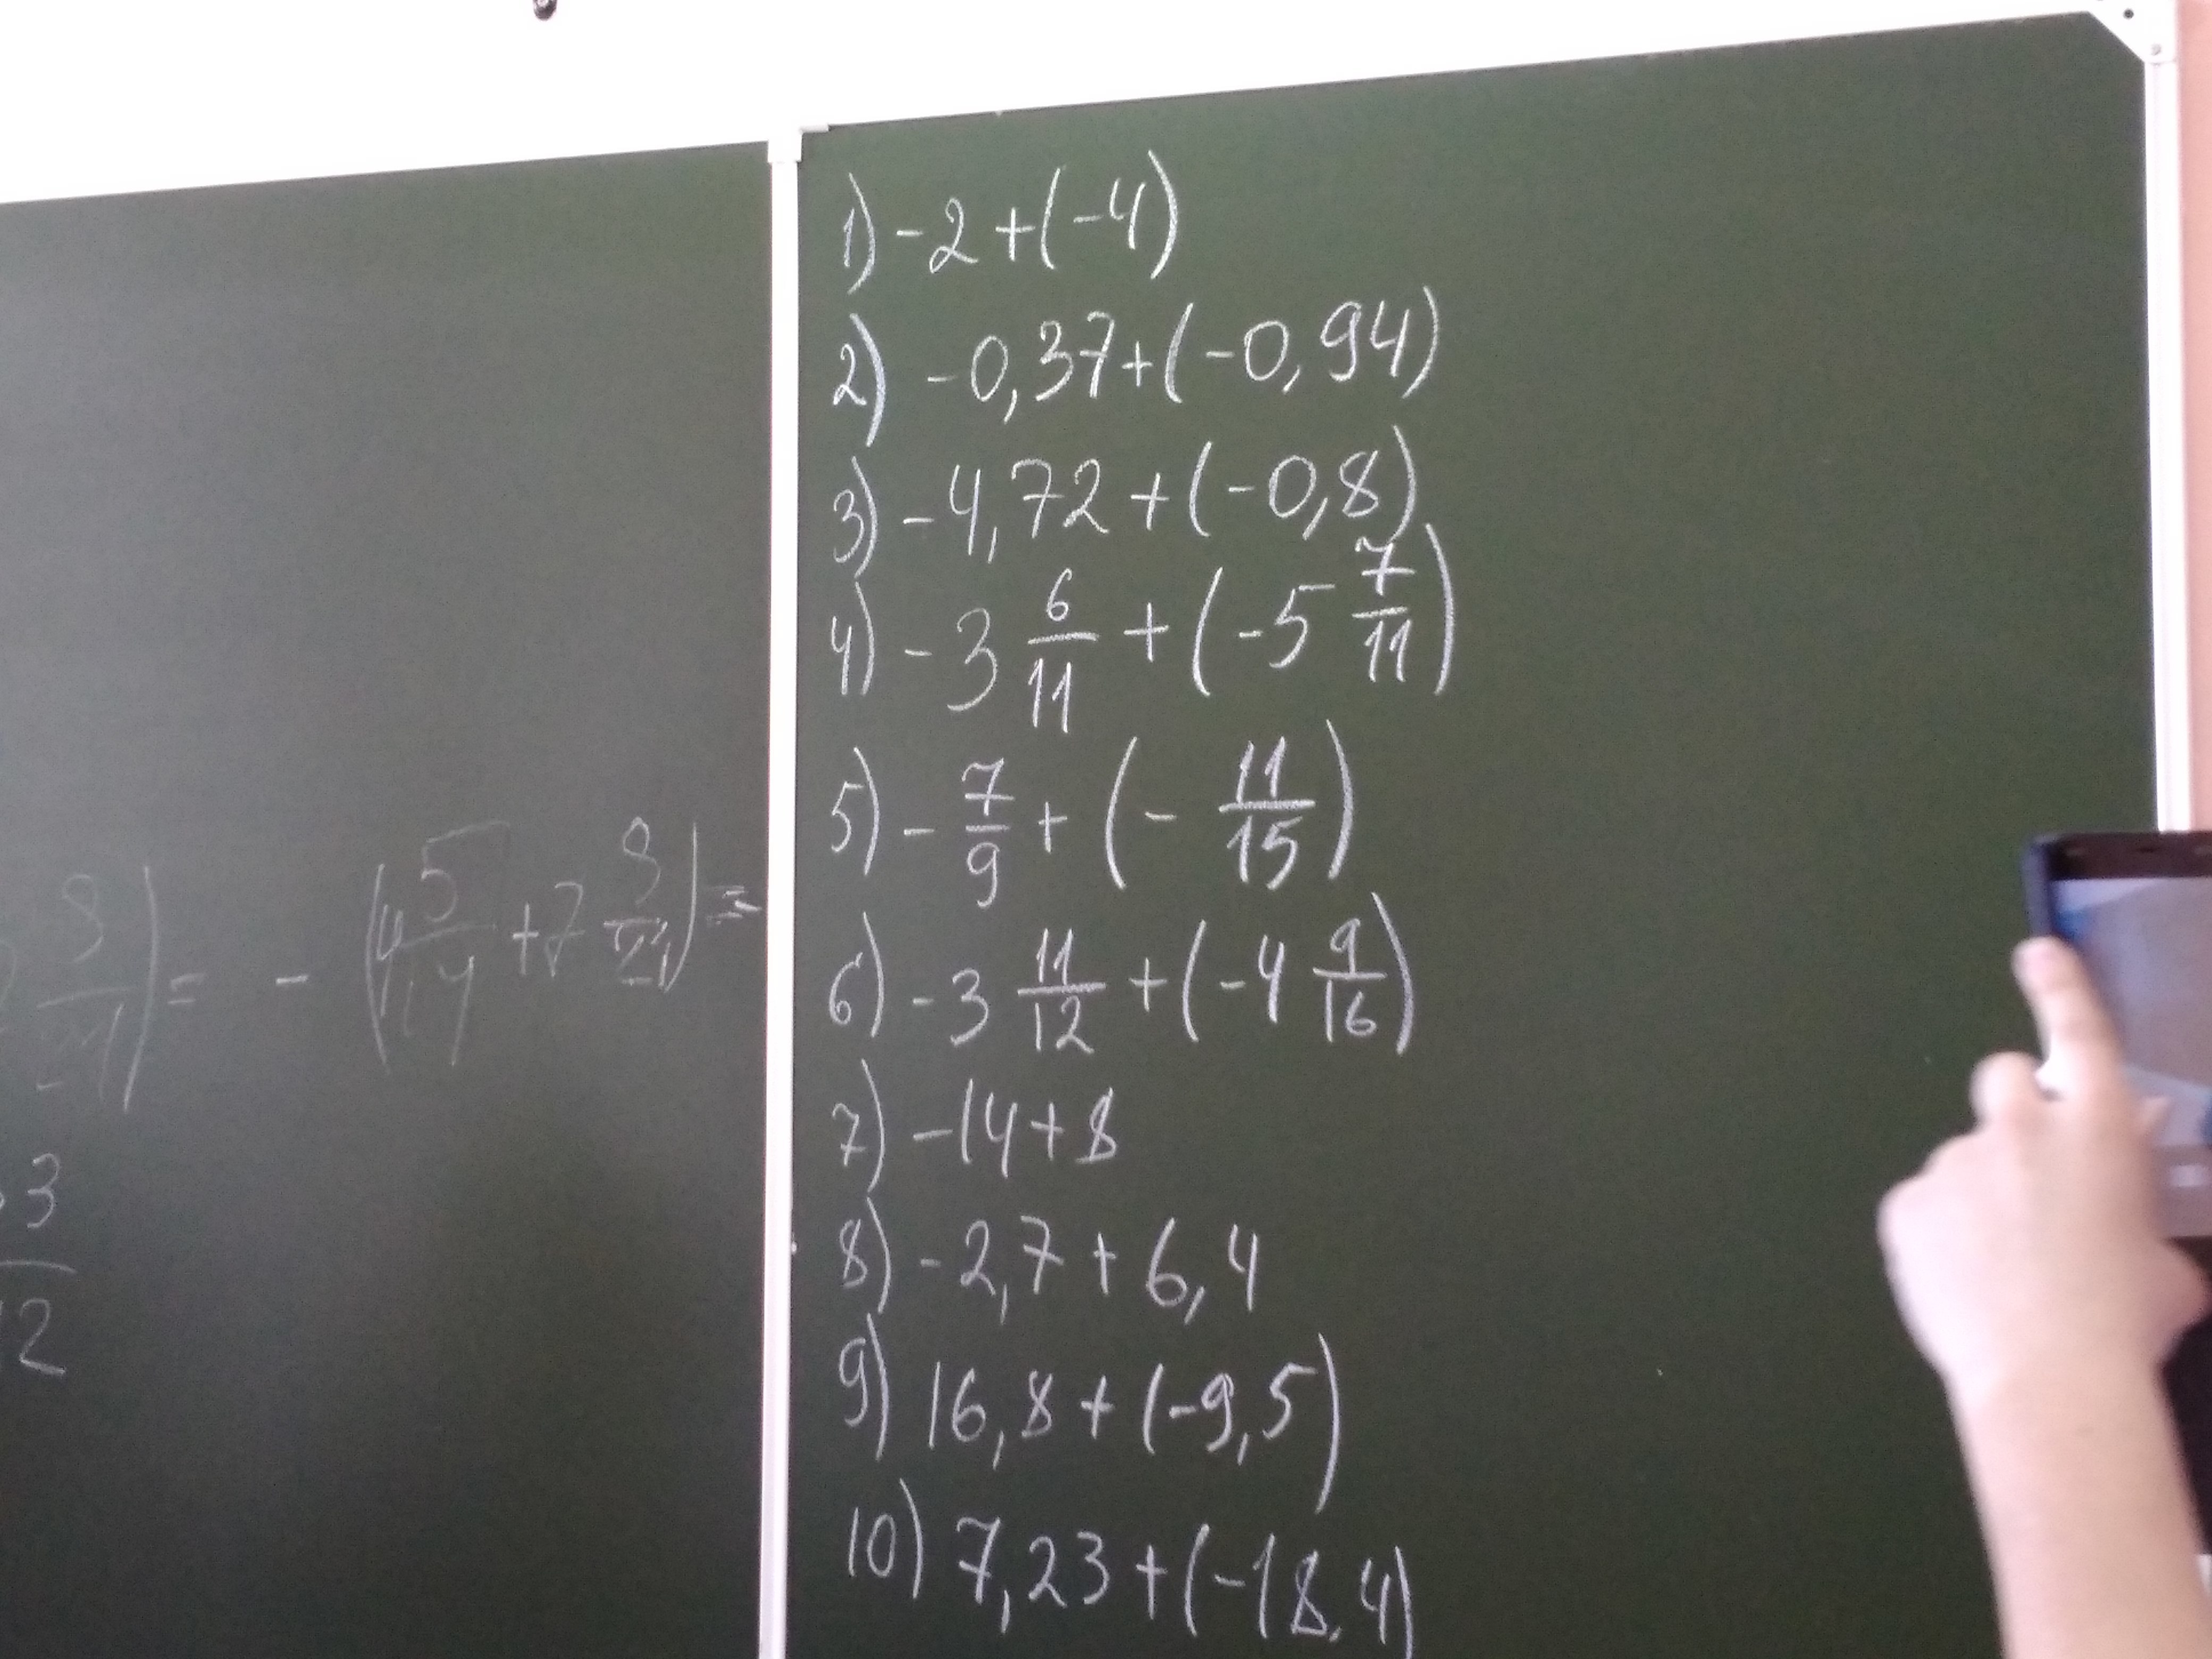 1) -2+(-4)
2) -0,37+(-0,94)
3) -4,72+(-0,8)
4) -3 6/11 + (-5 7/11)
5) - 7/9 + (- 11/15)
6) -3 11/12 + (-4 9/16)
7) -14+8
8) -2,7+6,4
9) 16,8+(-9,5)
10) 7,23+(-18,4)
8/21) = - (4 5/14 + 7 8/21) =
3
2